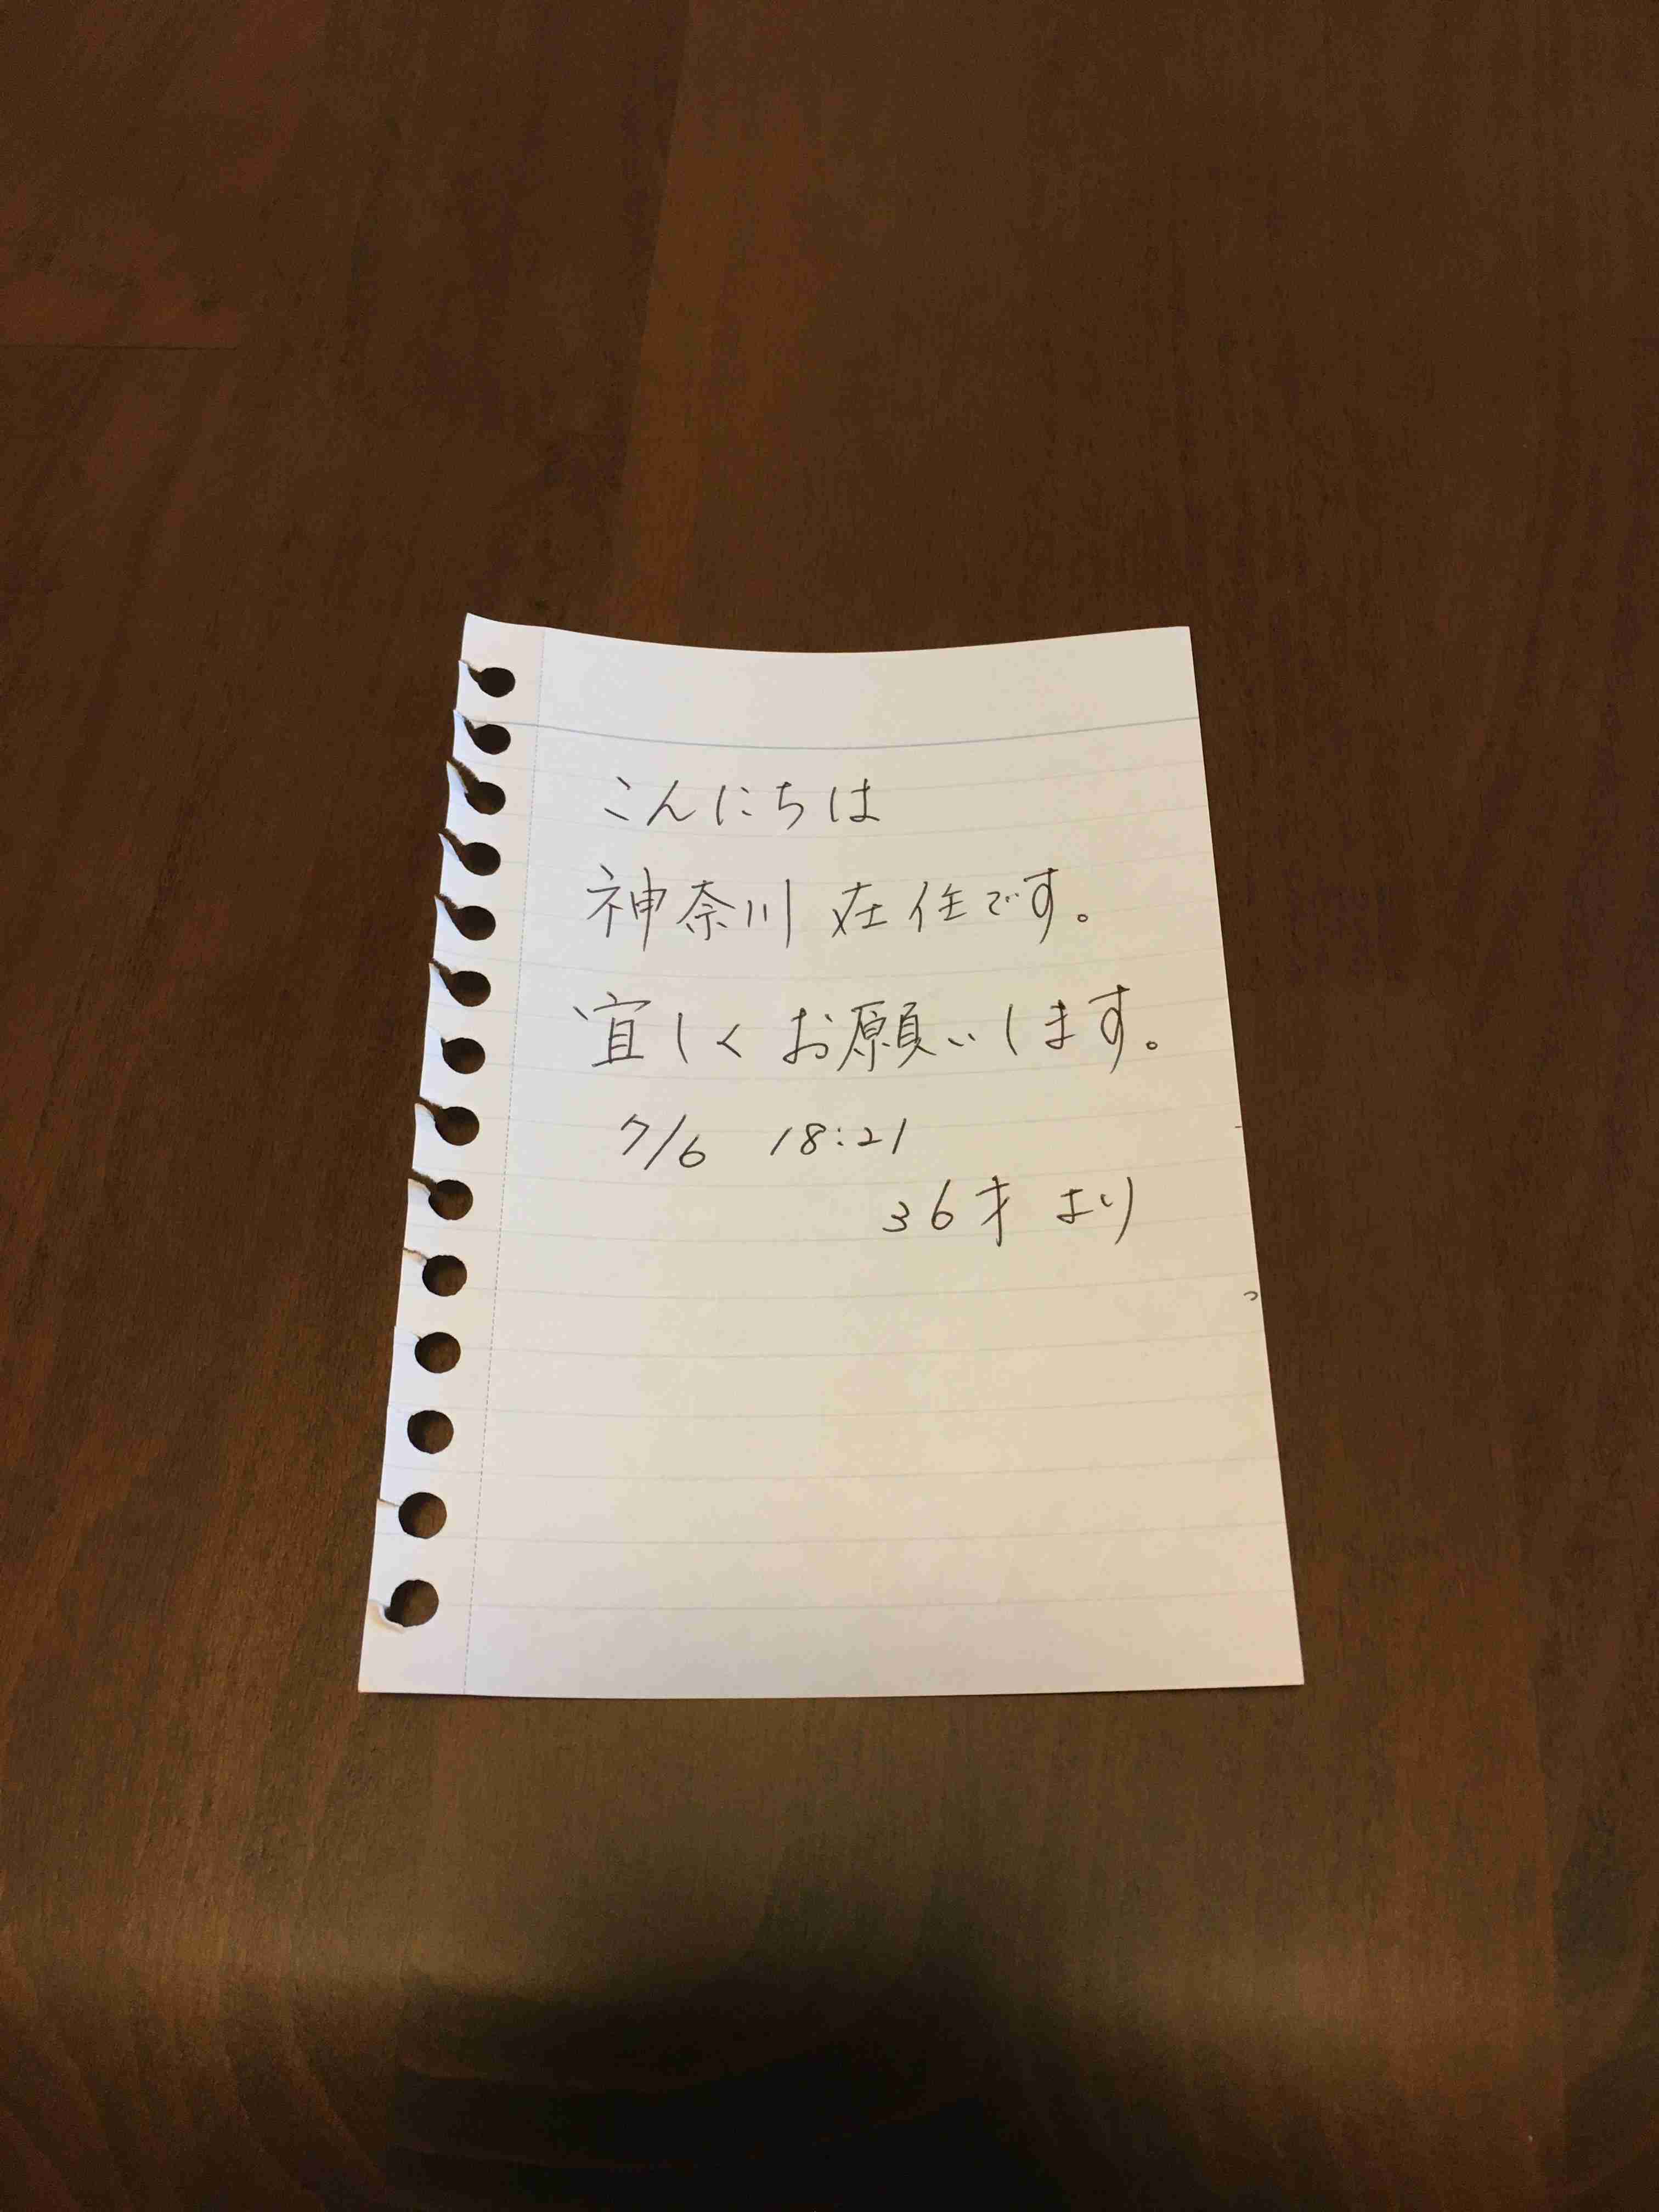 こんにちは
神奈川在住です。
宜しくお願いします。
7/6 18:21
36才 より